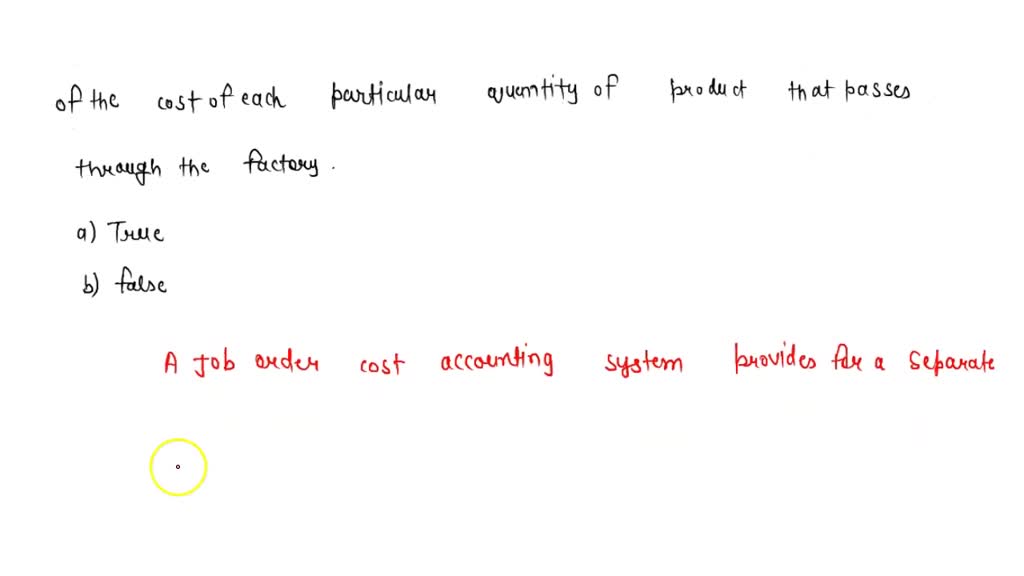 of the cost of each particular quantity of product that passes
through the factory.
a) True
b) false
A Job order cost accounting system provides for a separate